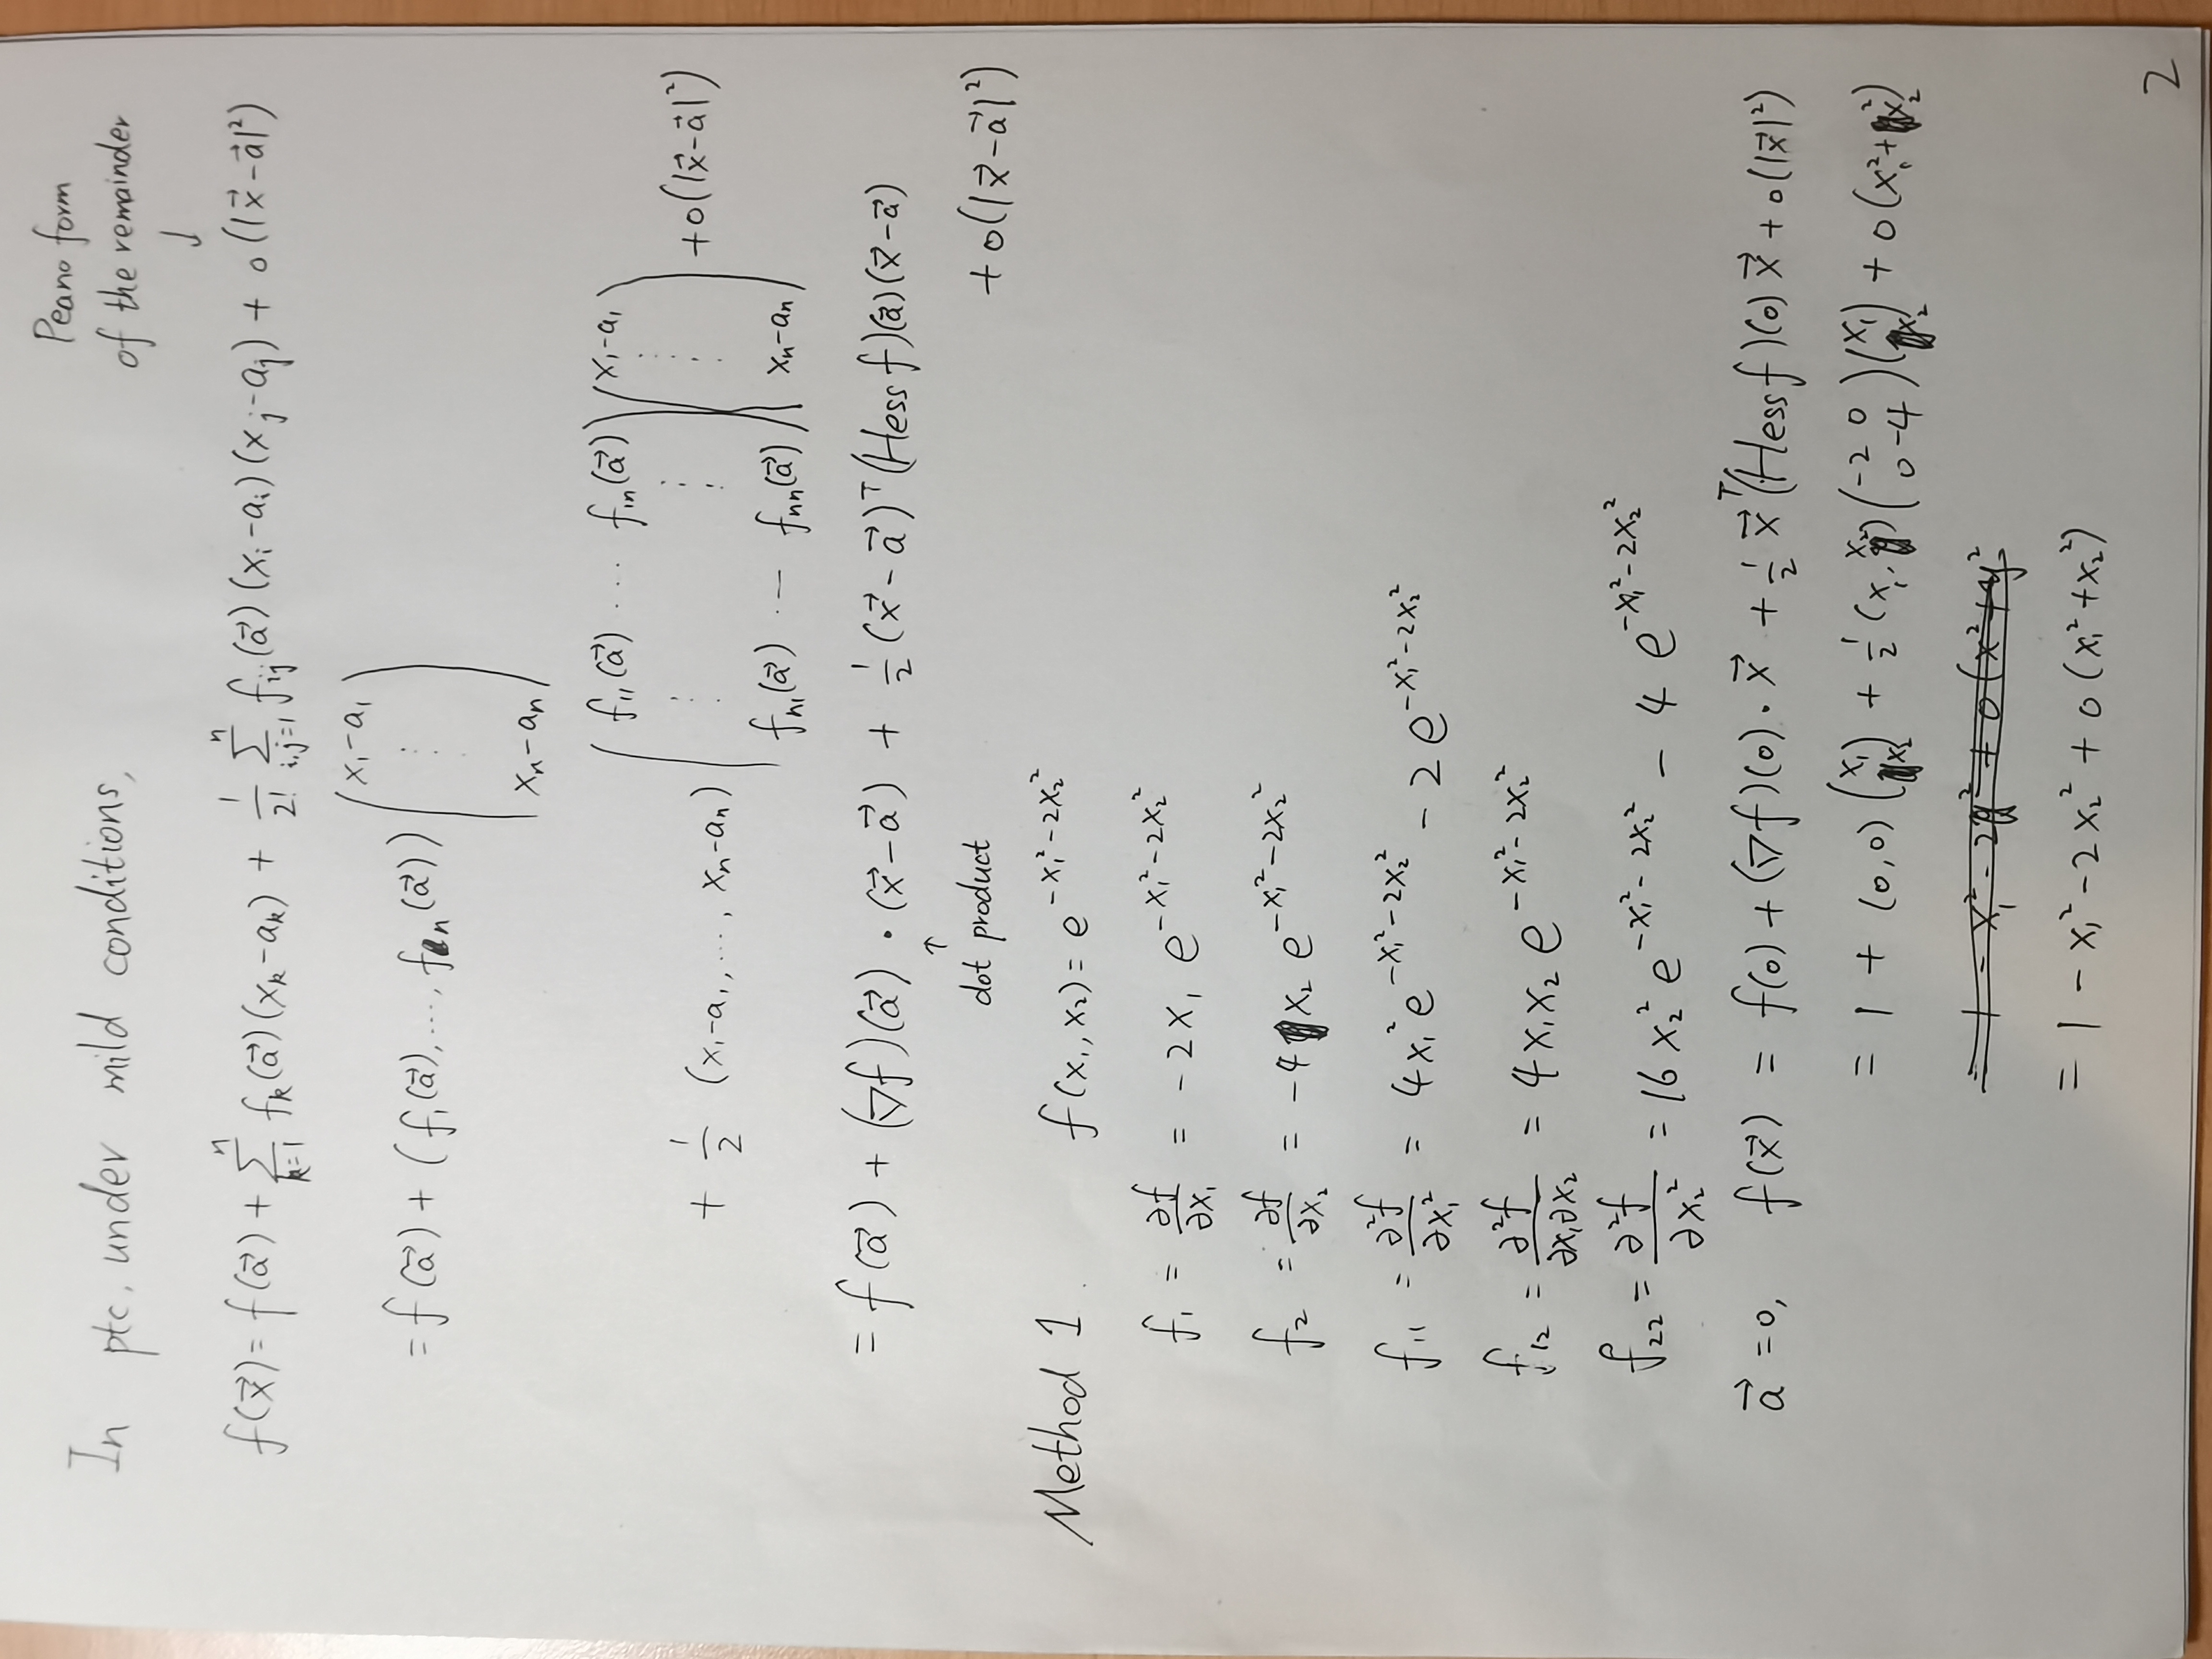 Peano form
of the remainder
↓
In ptc, under mild conditions,
f(x⃗) = f(a⃗) + ∑_{k=1}^{n} f_k(a⃗)(x_k-a_k) + 1/2! ∑_{i,j=1}^{n} f_{ij}(a⃗)(x_i-a_i)(x_j-a_j) + o(|x⃗-a⃗|²)
= f(a⃗) + (f_1(a⃗), ..., f_n(a⃗)) (x_1-a_1 ⋮ x_n-a_n)
+ 1/2 (x_1-a_1, ..., x_n-a_n) (f_{11}(a⃗) ... f_{1n}(a⃗) ⋮ ⋮ f_{n1}(a⃗) ... f_{nn}(a⃗)) (x_1-a_1 ⋮ x_n-a_n) + o(|x⃗-a⃗|²)
= f(a⃗) + (∇f)(a⃗) · (x⃗-a⃗) + 1/2 (x⃗-a⃗)^T (Hess f)(a⃗)(x⃗-a⃗)
↑
dot product
+ o(|x⃗-a⃗|²)
Method 1. f(x_1, x_2) = e^{-x_1²-2x_2²}
f_1 = ∂f/∂x_1 = -2x_1 e^{-x_1²-2x_2²}
f_2 = ∂f/∂x_2 = -4x_2 e^{-x_1²-2x_2²}
f_{11} = ∂²f/∂x_1² = 4x_1² e^{-x_1²-2x_2²} - 2e^{-x_1²-2x_2²}
f_{12} = ∂²f/∂x_1∂x_2 = 4x_1x_2 e^{-x_1²-2x_2²}
f_{22} = ∂²f/∂x_2² = 16x_2² e^{-x_1²-2x_2²} - 4e^{-x_1²-2x_2²}
a⃗ = 0, f(x⃗) = f(0) + (∇f)(0) · x⃗ + 1/2 x⃗^T (Hess f)(0) x⃗ + o(|x⃗|²)
= 1 + (0,0) (x_1 x_2) + 1/2 (x_1, x_2) (-2 0 0 -4) (x_1 x_2) + o(x_1²+x_2²)
= 1 - x_1² - 2y² + o(x²+y²
= 1 - x_1² - 2x_2² + o(x_1²+x_2²)
2